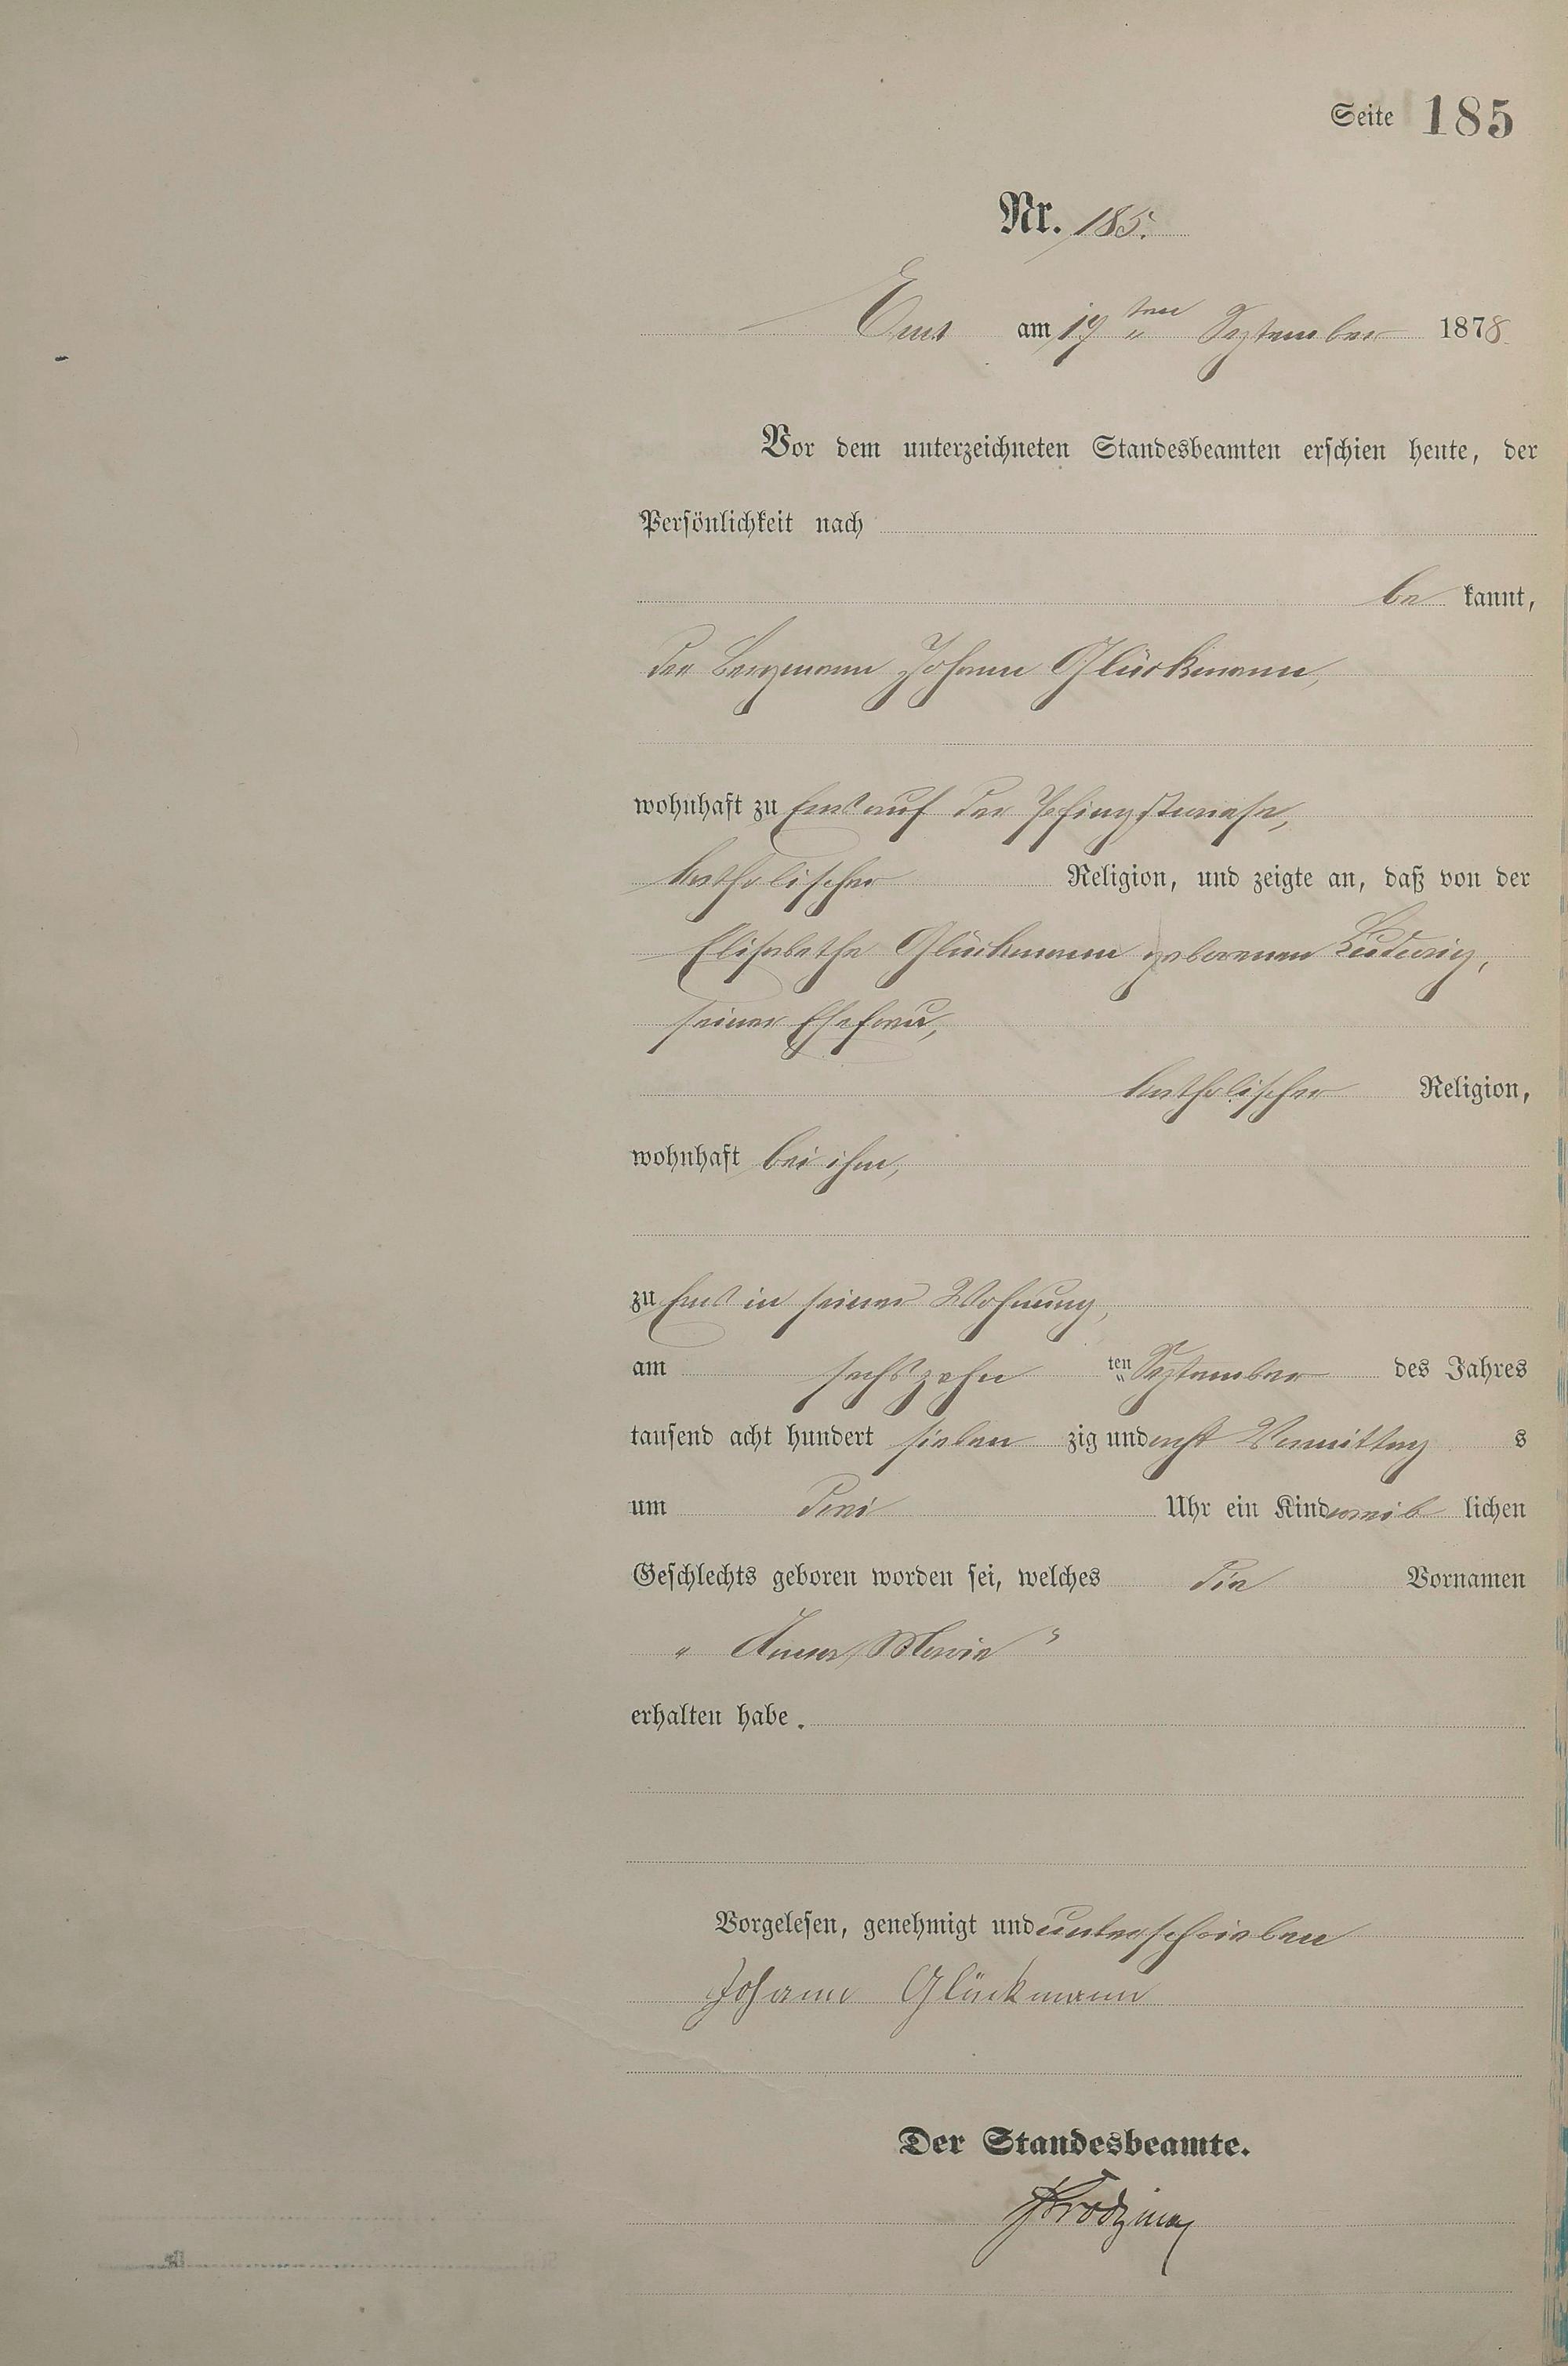 Seite 185
Nr. 185.
Ems am 19ten September 1878
Vor dem unterzeichneten Standesbeamten erschien heute, der
Persönlichkeit nach
be kannt,
der Bergmann Johann Glückmann,
wohnhaft zu Ems auf der Pfingstwiese,
katholischer Religion, und zeigte an, daß von der
Elisabethe Glückmann geborenen Ludwig,
seiner Ehefrau,
katholischer Religion,
wohnhaft bei ihm,
zu Ems in seiner Wohnung,
am sechszehn ten September des Jahres
tausend acht hundert sieben zig und acht Vormittag s
um drei Uhr ein Kind weib lichen
Geschlechts geboren worden sei, welches die Vornamen
„ Anna Marie "
erhalten habe.
Vorgelesen, genehmigt und unterschrieben
Johann Glückmann
Der Standesbeamte.